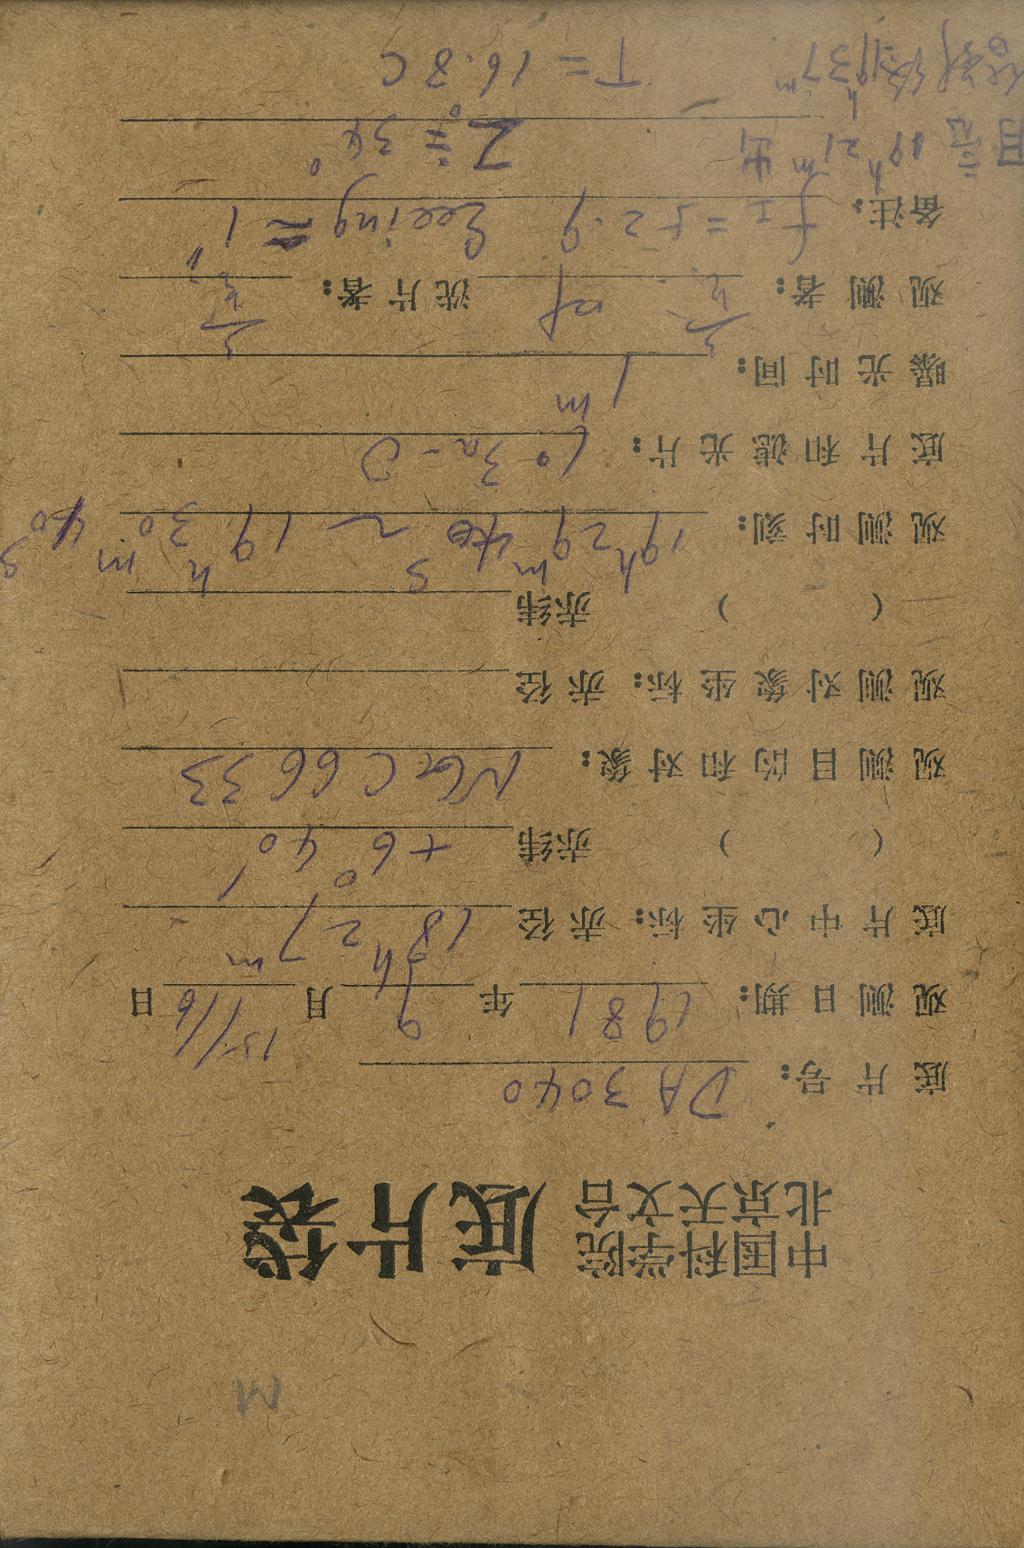 M
中国科学院
北京天文台 底片袋
底片号: DA 3040
观测日期: 1981 年 9 月 15/16 日
底片中心坐标: 赤径 18h 27m
( ) 赤纬 +6° 40'
观测目的和对象: NGC 6633
观测对象坐标: 赤径
( ) 赤纬
观测时刻: 19h 29m 40s ~ 19h 30m 40s
底片和滤光片: 103a-O
曝光时间: 1m
观测者: 洗片者:
备注: fI = 52.9 Seeing ≈ 1"
月 19h 21m 出 Z = 34°
19h 37m T = 16.8 C